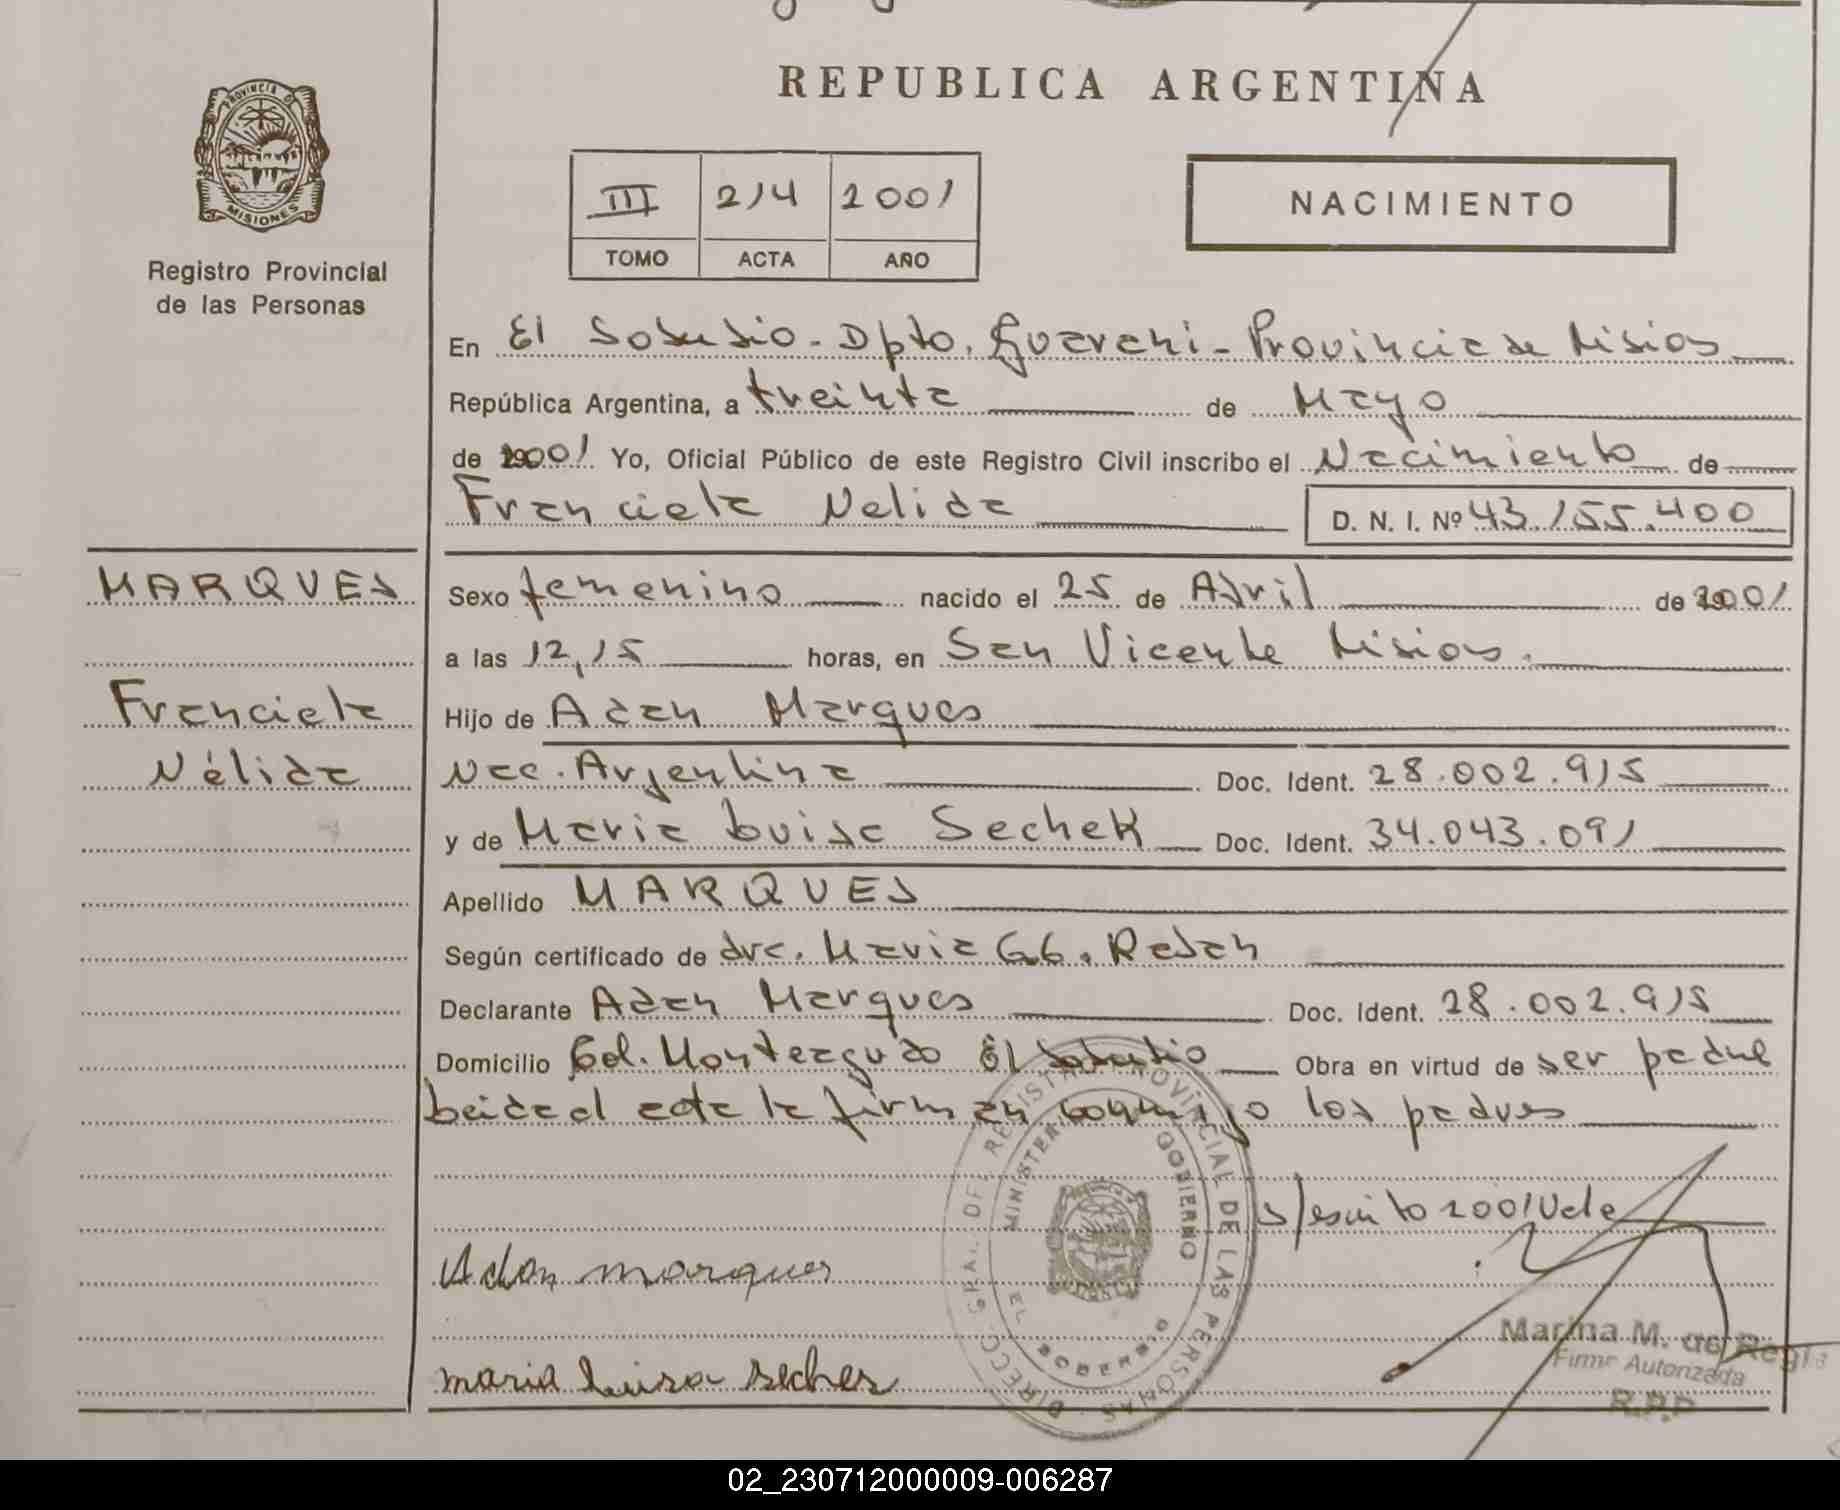 REPUBLICA ARGENTINA
PROVINCIA DE
MISIONES
Registro Provincial
de las Personas
III 214 2001
TOMO ACTA AÑO
NACIMIENTO
En El Soberbio - Dpto. Guarani - Provincia de Misios
República Argentina, a treinta de Mayo
de 2001 Yo, Oficial Público de este Registro Civil inscribo el Nacimiento de
Franciela Nelida D. N. I. Nº 43.155.400
MARQUES
Franciela
Nélida
Sexo femenino nacido el 25 de Abril de 2001
a las 12,15 horas, en San Vicente Misios.
Hijo de Adan Marques
Nac. Argentina Doc. Ident. 28.002.915
y de Maria Luisa Sechek Doc. Ident. 34.043.091
Apellido MARQUES
Según certificado de dra. Maria G. Reban
Declarante Adan Marques Doc. Ident. 28.002.915
Domicilio Col. Monteagudo El Soberbio Obra en virtud de ser padre
leida el acta la firman conmigo los padres
s/escrito 2001 Vale
Adan marques
maria luisa sechek
DIRECC. GRAL. DEL REGISTRO PROVINCIAL DE LAS PERSONAS
MINISTERIO GOBIERNO
EL SOBERBIO
Marina M. de Regis
Firma Autorizada
R.P.P
02_230712000009-006287